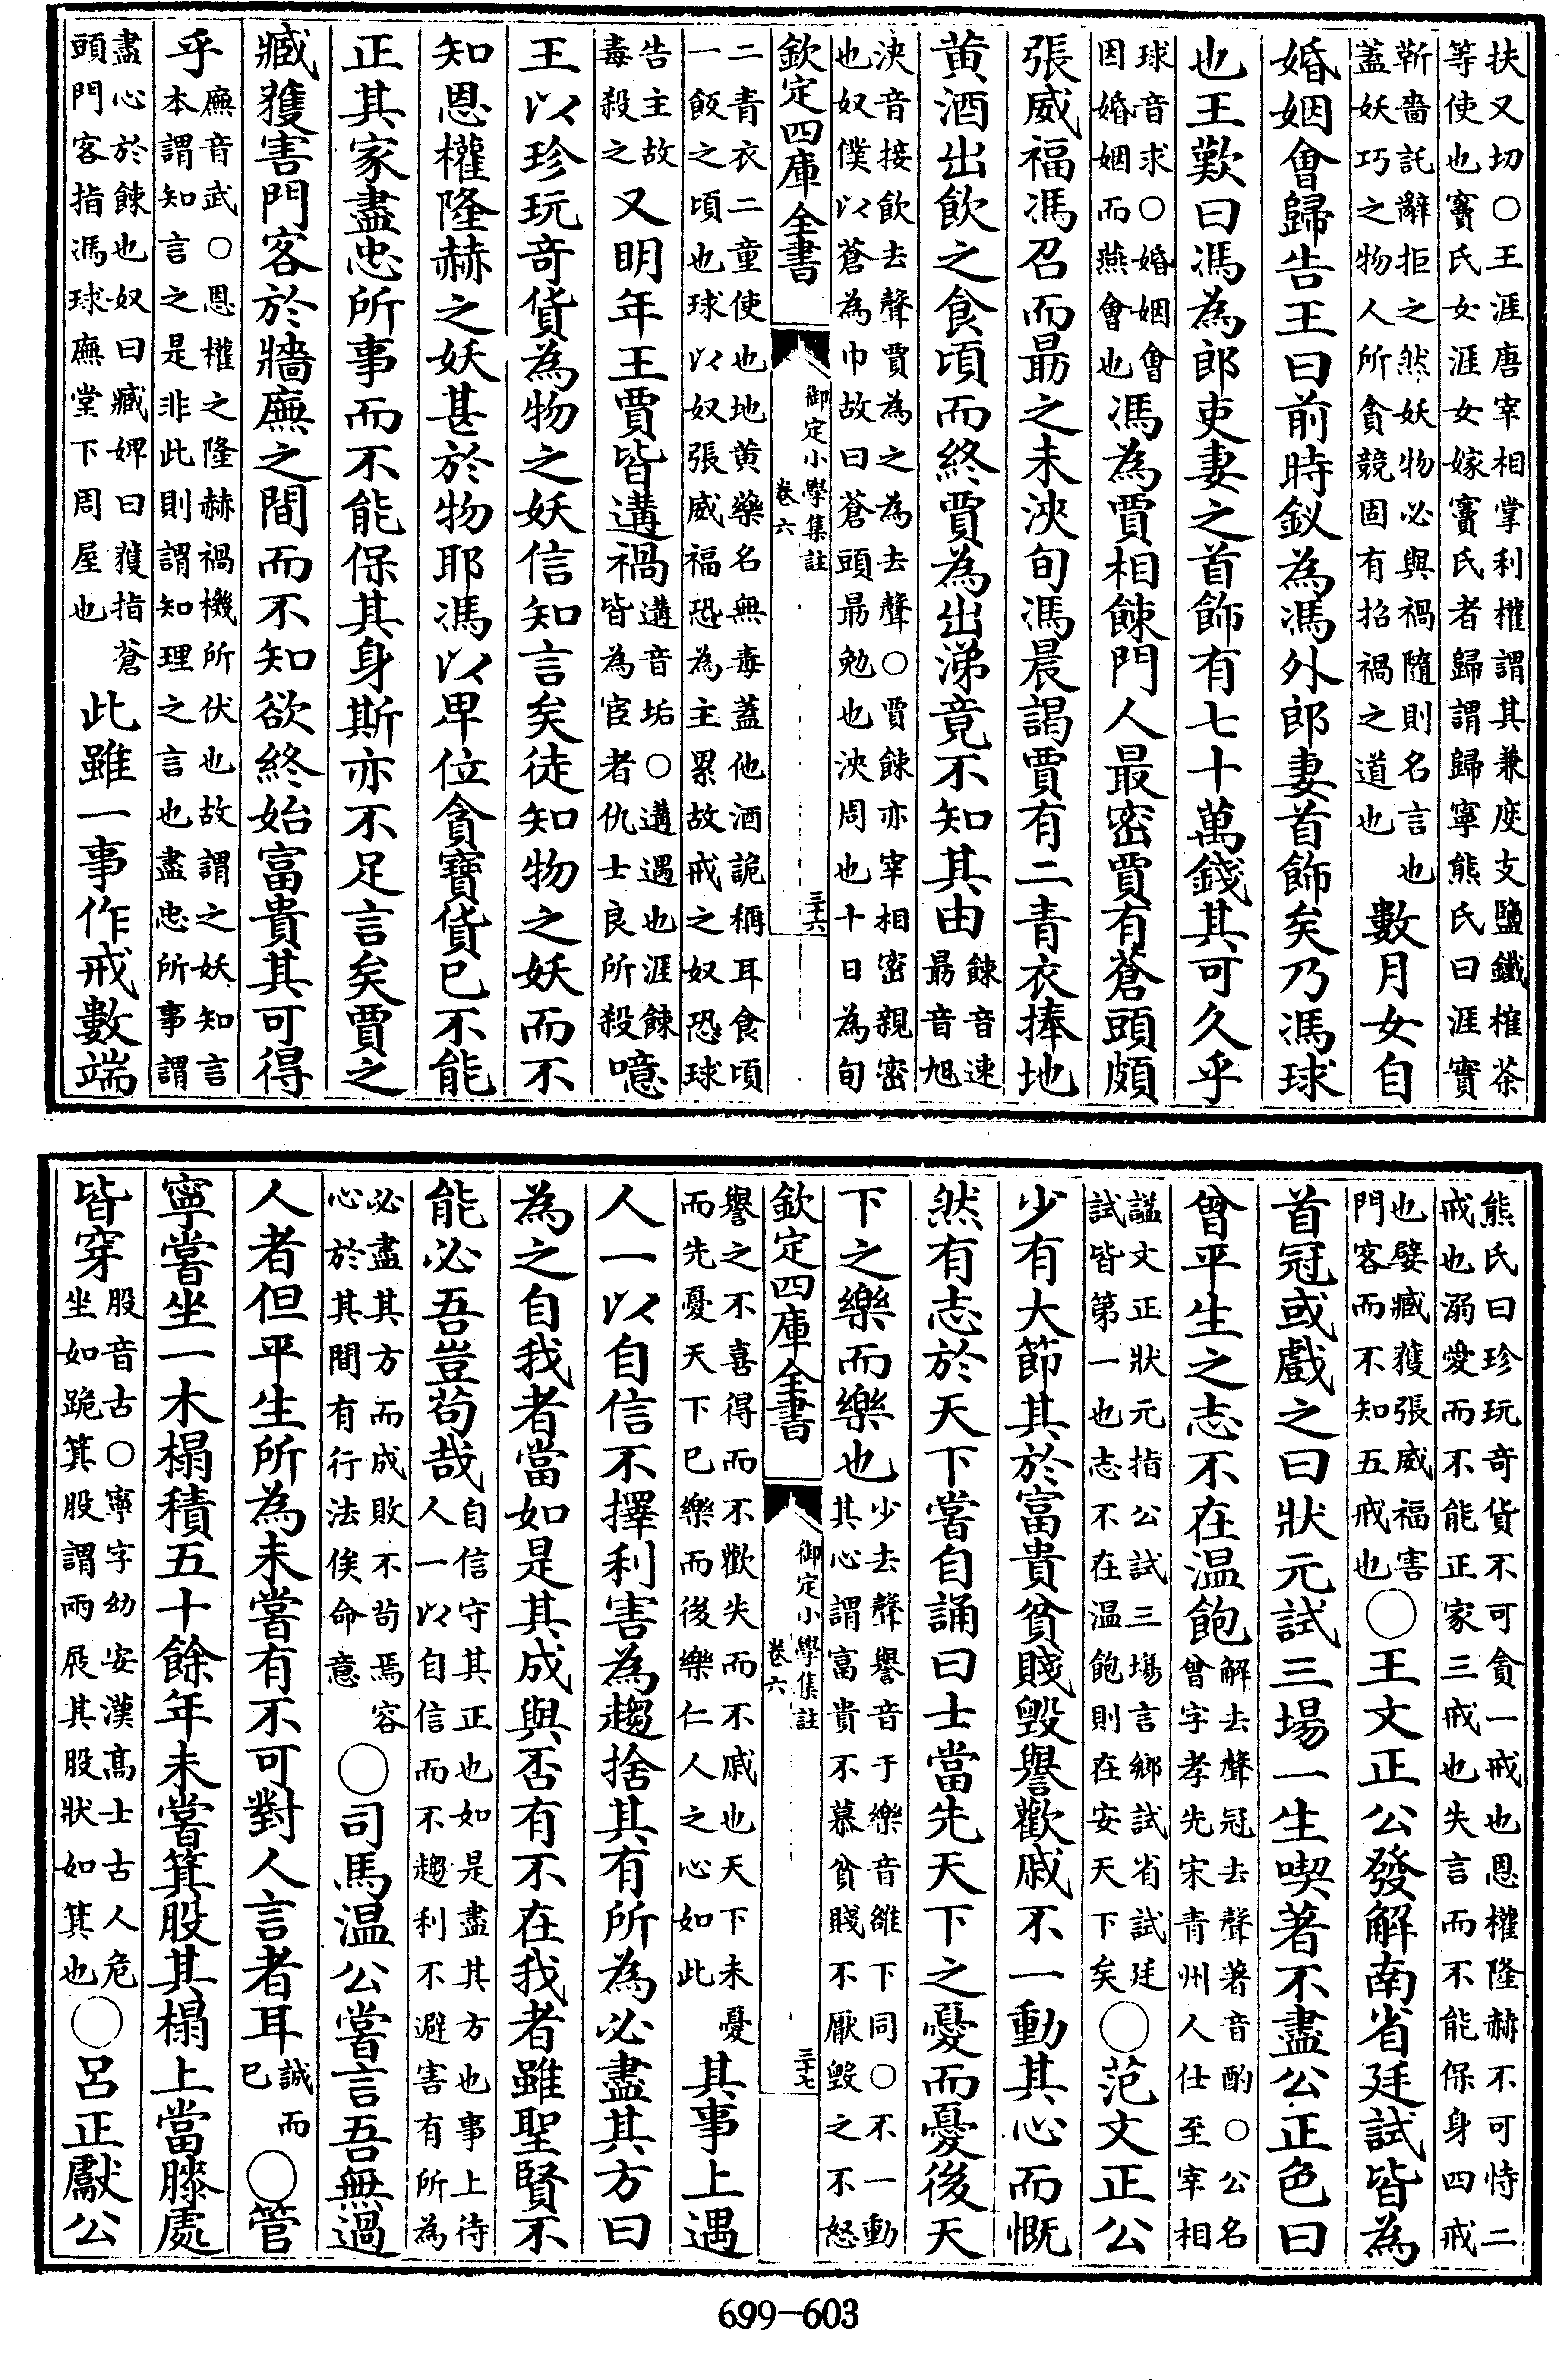 扶又切○王涯唐宰相掌利權謂其兼度支鹽鐵榷茶
等使也竇氏女涯女嫁竇氏者歸謂歸寧熊氏曰涯實
靳嗇託辭拒之然妖物必與禍隨則名言也
蓋妖巧之物人所貪競因有招禍之道也
數月女自
婚姻會歸告王曰前時釵為馮外郎妻首飾矣乃馮球
也王歎曰馮為郎吏妻之首飾有七十萬錢其可久乎
球音求○婚姻會
因婚姻而燕會也
馮為賈相餗門人最密賈有蒼頭頗
張威福馮召而勗之未浹旬馮晨謁賈有二青衣捧地
黄酒出飲之食頃而終賈為出涕竟不知其由
餗音速
勗音旭
浹音接飲去聲賈為之為去聲○賈餗亦宰相密親密
也奴僕以蒼為巾故曰蒼頭勗勉也浹周也十日為旬
欽定四庫全書
御定小學集註
卷六
三十六
二青衣二童使也地黄藥名無毒蓋他酒詭稱耳食頃
一飯之頃也球以奴張威福恐為主累故戒之奴恐球
告主故
毒殺之
又明年王賈皆遘禍
遘音垢○遘遇也涯餗
皆為宦者仇士良所殺
噫
王以珍玩奇貨為物之妖信知言矣徒知物之妖而不
知恩權隆赫之妖甚於物耶馮以卑位貪寶貨已不能
正其家盡忠所事而不能保其身斯亦不足言矣賈之
臧獲害門客於牆廡之間而不知欲終始富貴其可得
乎
廡音武○恩權之隆赫禍機所伏也故謂之妖知言
本謂知言之是非此則謂知理之言也盡忠所事謂
盡心於餗也奴曰臧婢曰獲指蒼
頭門客指馮球廡堂下周屋也
此雖一事作戒數端
熊氏曰珍玩奇貨不可貪一戒也恩權隆赫不可恃二
戒也溺愛而不能正家三戒也失言而不能保身四戒
也嬖臧獲張威福害
門客而不知五戒也
○王文正公發解南省廷試皆為
首冠或戲之曰狀元試三場一生喫著不盡公正色曰
曾平生之志不在温飽
解去聲冠去聲著音酌○公名
曾字孝先宋青州人仕至宰相
謚文正狀元指公試三塲言鄉試省試廷
試皆第一也志不在温飽則在安天下矣
○范文正公
少有大節其於富貴貧賤毁譽歡戚不一動其心而慨
然有志於天下嘗自誦曰士當先天下之憂而憂後天
下之樂而樂也
少去聲譽音于樂音雒下同○不一動
其心謂富貴不慕貧賤不厭毁之不怒
欽定四庫全書
御定小學集註
卷六
三十七
譽之不喜得而不歡失而不戚也天下未憂
而先憂天下巳樂而後樂仁人之心如此
其事上遇
人一以自信不擇利害為趨捨其有所為必盡其方曰
為之自我者當如是其成與否有不在我者雖聖賢不
能必吾豈苟哉
自信守其正也如是盡其方也事上待
人一以自信而不趨利不避害有所為
必盡其方而成敗不苟焉容
心於其間有行法俟命意
○司馬温公嘗言吾無過
人者但平生所為未嘗有不可對人言者耳
誠而
巳
○管
寧嘗坐一木榻積五十餘年未嘗箕股其榻上當膝處
皆穿
股音古○寧字幼安漢高士古人危
坐如跪箕股謂兩展其股狀如箕也
○呂正獻公
699-603